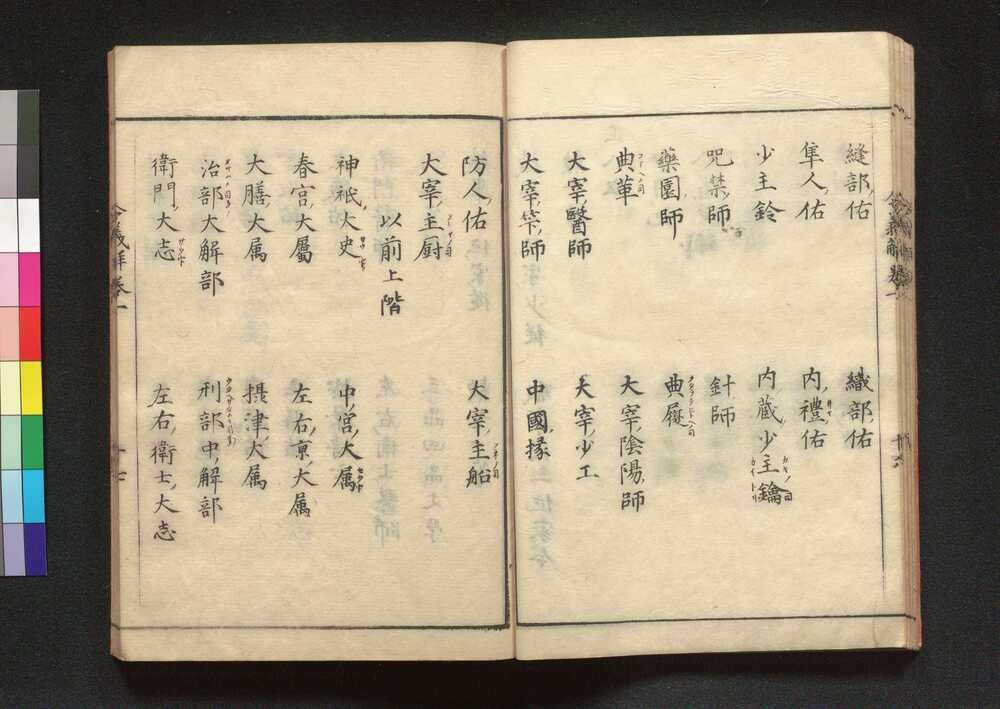 縫部佑　織部佑
隼人佑　内禮佑
少主鈴　内蔵少主鑰
咒禁師　針師
藥園師　典履
典革　大宰陰陽師
大宰醫師　大宰少工
大宰竿師　中國掾
防人佑　大宰主船
大宰主厨
以前上階
神祇大史　中宮大属
春宮大屬　左右亰大属
大膳大属　摂津大属
治部大解部　刑部中解部
衛門大志　左右衛士大志
令義解卷一